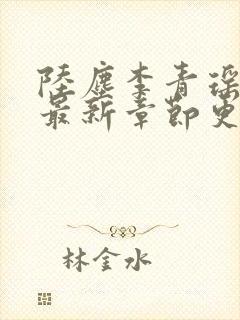 陸塵李青瑶
最新章節更
林金水